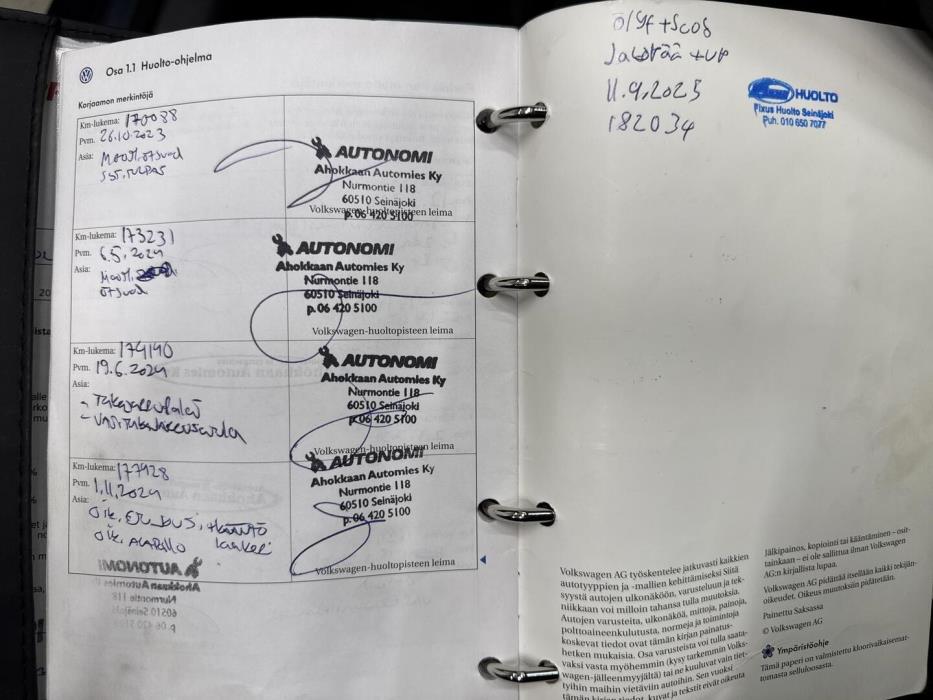 Osa 1.1 Huolto-ohjelma
Korjaamon merkintöjä
Km-lukema: 170088
Pvm. 26.10.2023
Asia:
AUTONOMI
Ahokkaan Automies Ky
Nurmontie 118
60510 Seinäjoki
Volkswagen-huoltopisteen leima
p. 06 420 5100
Km-lukema: 173231
Pvm. 6.5.2024
Asia:
AUTONOMI
Ahokkaan Automies Ky
Nurmontie 118
60510 Seinäjoki
p. 06 420 5100
Volkswagen-huoltopisteen leima
Km-lukema: 174140
Pvm. 19.6.2024
Asia:
AUTONOMI
Ahokkaan Automies Ky
Nurmontie 118
60510 Seinäjoki
p. 06 420 5100
Volkswagen-huoltopisteen leima
Km-lukema: 177928
Pvm. 1.11.2024
Asia:
AUTONOMI
Ahokkaan Automies Ky
Nurmontie 118
60510 Seinäjoki
p. 06 420 5100
Volkswagen-huoltopisteen leima
AUTONOMI
Ahokkaan Automies
Nurmontie 118
60510 Seinäjoki
p. 06 420 5100
11.9.2025
182034
HUOLTO
Fixus Huolto Seinäjoki
Puh. 010 650 7077
Volkswagen AG työskentelee jatkuvasti kaikkien
autotyyppien ja -mallien kehittämiseksi Siitä
syystä autojen ulkonäköön, varusteluun ja tek-
niikkaan voi milloin tahansa tulla muutoksia.
Autojen varusteita, ulkonäköä, mittoja, painoja,
polttoaineenkulutusta, normeja ja toimintoja
koskevat tiedot ovat tämän kirjan painatus-
hetken mukaisia. Osa varusteista voi tulla saata-
vaksi vasta myöhemmin (kysy tarkemmin Volks-
wagen-jälleenmyyjältä) tai ne kuuluvat vain tiet-
tyihin maihin vietäviin autoihin. Sen vuoksi
tämän kirjan tiedot, kuvat ja tekstit eivät oikeuta
Jälkipainos, kopiointi tai kääntäminen – osit-
tainkaan – ei ole sallittua ilman Volkswagen
AG:n kirjallista lupaa.
Volkswagen AG pidättää itsellään kaikki tekijän-
oikeudet. Oikeus muutoksiin pidätetään.
Painettu Saksassa
© Volkswagen AG
Ympäristöohje
Tämä paperi on valmistettu kloorivalkaisemat-
tomasta selluloosasta.